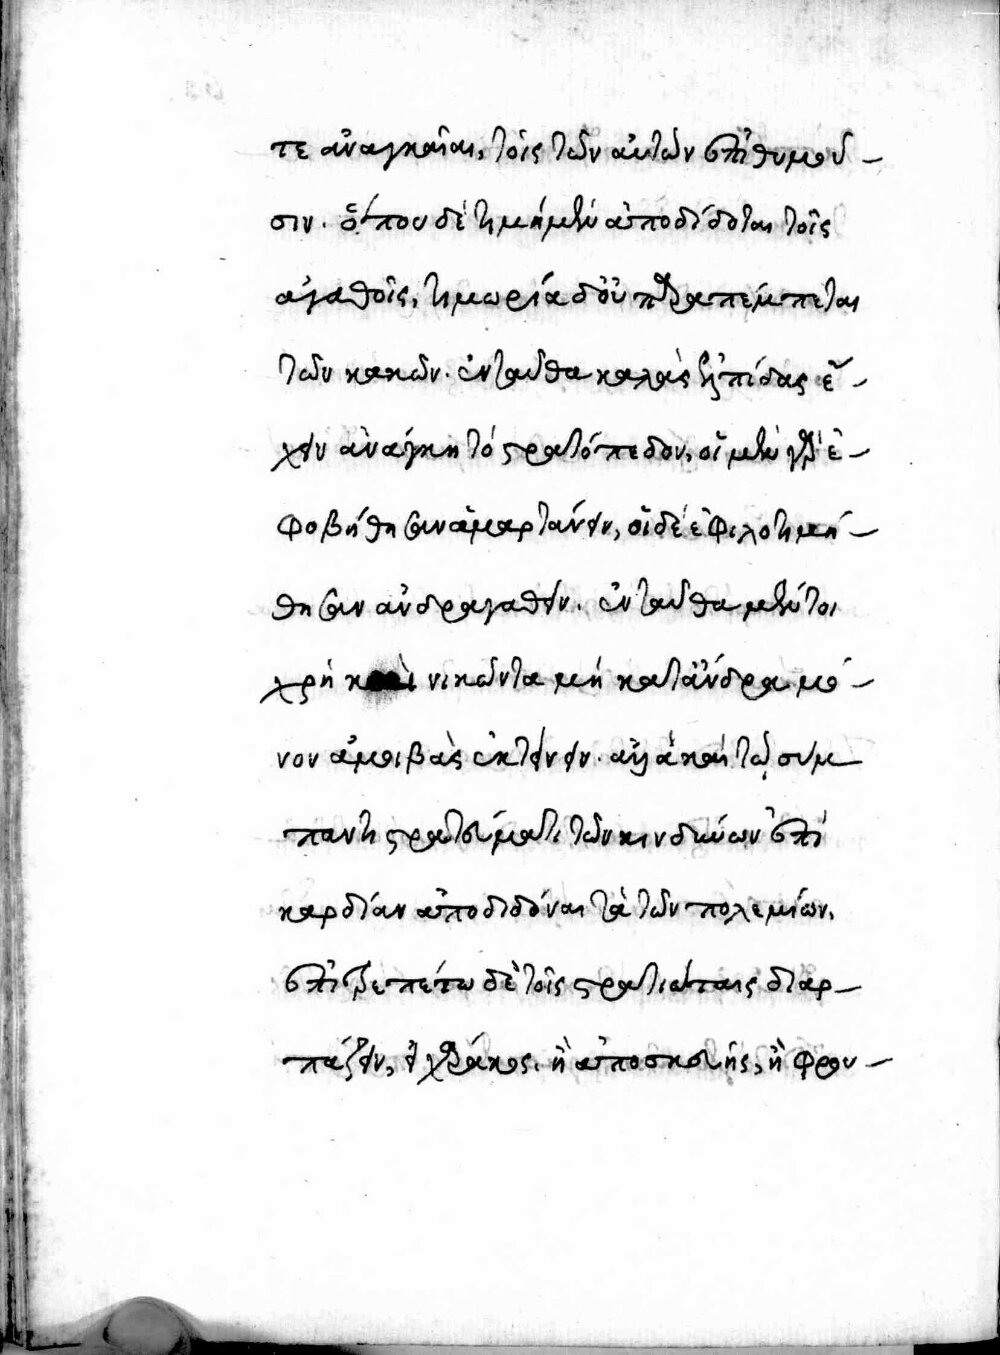 τε ἀναγκαῖαι, τοῖς τῶν αὐτῶν ἐπιθυμοῦ-
σιν. ὅπου δὲ τιμὴ μὲν ἀποδίδοται τοῖς
ἀγαθοῖς, τιμωρία δ' οὐ παραπέμπεται
τῶν κακῶν. ἐνταῦθα καλὰς ἐλπίδας ἔ-
χειν ἀνάγκη τὸ στρατόπεδον, οἳ μὲν γὰρ ἐ-
φοβήθησαν ἁμαρτάνειν, οἳ δὲ ἐφιλοτιμή-
θησαν ἀνδραγαθεῖν. ἐνταῦθα μέντοι
χρὴ καὶ νικῶντα μὴ κατ' ἄνδρα μό-
νον ἀμοιβὰς ἐκτίνειν. ἀλλὰ καὶ τῷ σύμ-
παντι στρατεύματι τῶν κινδύνων ἐπι
καρδίαν ἀποδιδόναι τὰ τῶν πολεμίων.
ἐπιτρεπέτω δὲ τοῖς στρατιώταις διαρ-
πάζειν, εἰ χάρακος. ἢ ἀποσκευῆς, ἢ φρου-